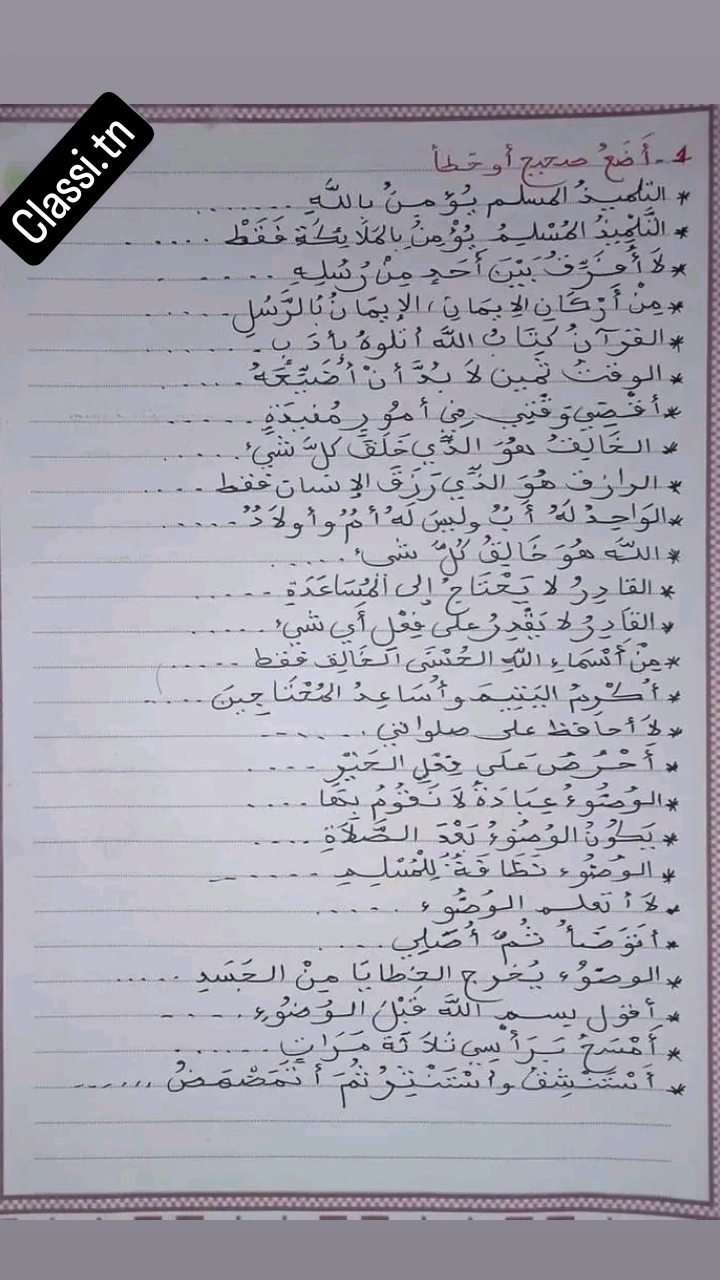 Classi.tn
1 - أَضَعُ صحيح أو خطأ
* التلميذُ المسلم يُؤمنُ باللَّهِ .......
* التِّلْمِيذُ المُسْلِمُ يُؤْمِنُ بِالمَلَائِكَةِ فَقَطْ .......
* لَا أُفَرِّقُ بَيْنَ أَحَدٍ مِنْ رُسُلِهِ .......
* مِنْ أَرْكَانِ الإِيمَانِ، الإِيمَانُ بَالرُّسُلِ .......
* القرْآنُ كِتَابُ اللَّه أتلوهُ بِأَدَبٍ .......
* الوقتُ ثمين لَا بُدَّ أنْ أُضَيِّعَهُ .......
* أقْضِي وَقْتِي فِي أمُورٍ مُفيدَةٍ .......
* الخَالِقُ هُوَ الذِّي خَلَقَ كلَّ شيْءٍ .......
* الرازق هُوَ الذِّي رَزَقَ الإنسان فقط .......
* الوَاحِدُ لَهُ أَبُ وليسَ لَهُ أمُ وأولَادُ .......
* اللَّه هُوَ خَالِقُ كُلِّ شيء .......
* القَادِرُ لَا يَحْتَاجُ إلى المُسَاعَدَةِ .......
* القَادِرُ لا يَقْدِرُ علَى فِعْلِ أَي شيْءٍ .......
* مِنْ أَسْمَاءِ اللَّهِ الحُسْنَى الخَالِق فقط .......
* أُكْرِمُ اليَتِيمَ وأُسَاعِدُ المُحْتَاجِينَ .......
* لَا أحافظ على صلواتي .......
* أَحْرُصُ عَلَى فِعْلِ الخَيْرِ ....
* الوُضُوءُ عِبَادَةٌ لَا نَقُومُ بِهَا ....
* يَكُونُ الوُضُوءُ بَعْدَ الصَّلَاةِ ....
* الوُضُوء نَظَافَةُ لِلْمُسْلِمِ .......
* لَا أتعلم الوُضُوء .......
* أتَوَضَأُ ثُمَّ أُصَلِي ....
* الوضوُء يُخرج الخطايَا مِنْ الجَسَدِ .....
* أقول بسم اللَّه قَبْلَ الوُضُوءِ .......
* أَمْسَحُ بَرَأْسِي ثلَاثَةَ مَرَاتٍ .......
* أَسْتَنْشِقُ وأسْتَنْثِرُ ثُمَ أَتَمَضْمَضُ .......